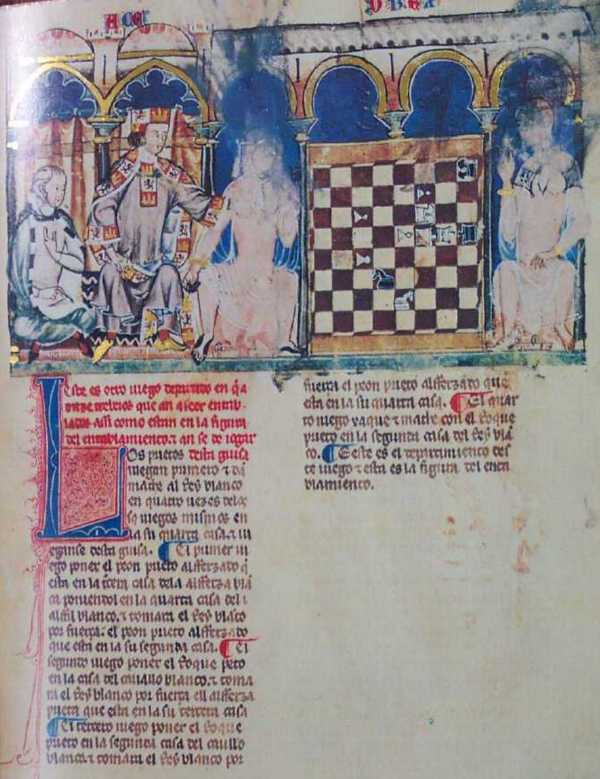 Este es otro iuego departido en q̃ a
onze trebeios que an a seer entab
lados assi como estan en la figura
del entablamiento. ⁊ an se de iogar
Los prietos desta guisa
iuegan primero ⁊ dã
mathe al Rey blanco
en quatro uezes delos
sq iuegos mismos en
la su quarta casa. ⁊ iu
eganse desta guisa. El primer iu
ego poner el peon prieto alfferzado q̃
esta en la tercera casa dela alfferza blã
ca poniendol en la quarta casa del
alffil blanco. ⁊ tomara el Rey blãco
por fuerça. el peon prieto alfferzado
que esta en la su segunda casa. El
segundo iuego poner el Roque prieto
en la casa del cauallo blanco. ⁊ toma
ra el Rey blanco por fuerça ell alfferza
prieta que esta en la su tercera casa
El tercero iuego poner el Roque
prieto en la segunda casa del cauallo
blanco. ⁊ tomara el Rey blanco por
fuerça el peon prieto alfferzado que
esta en la su quarta casa. El quar
to iuego xaque ⁊ mathe con el Roque
prieto en la segunda casa del Rey blã
co. E este es el departimiento des
te iuego ⁊ esta es la figura del enta
blamiento.